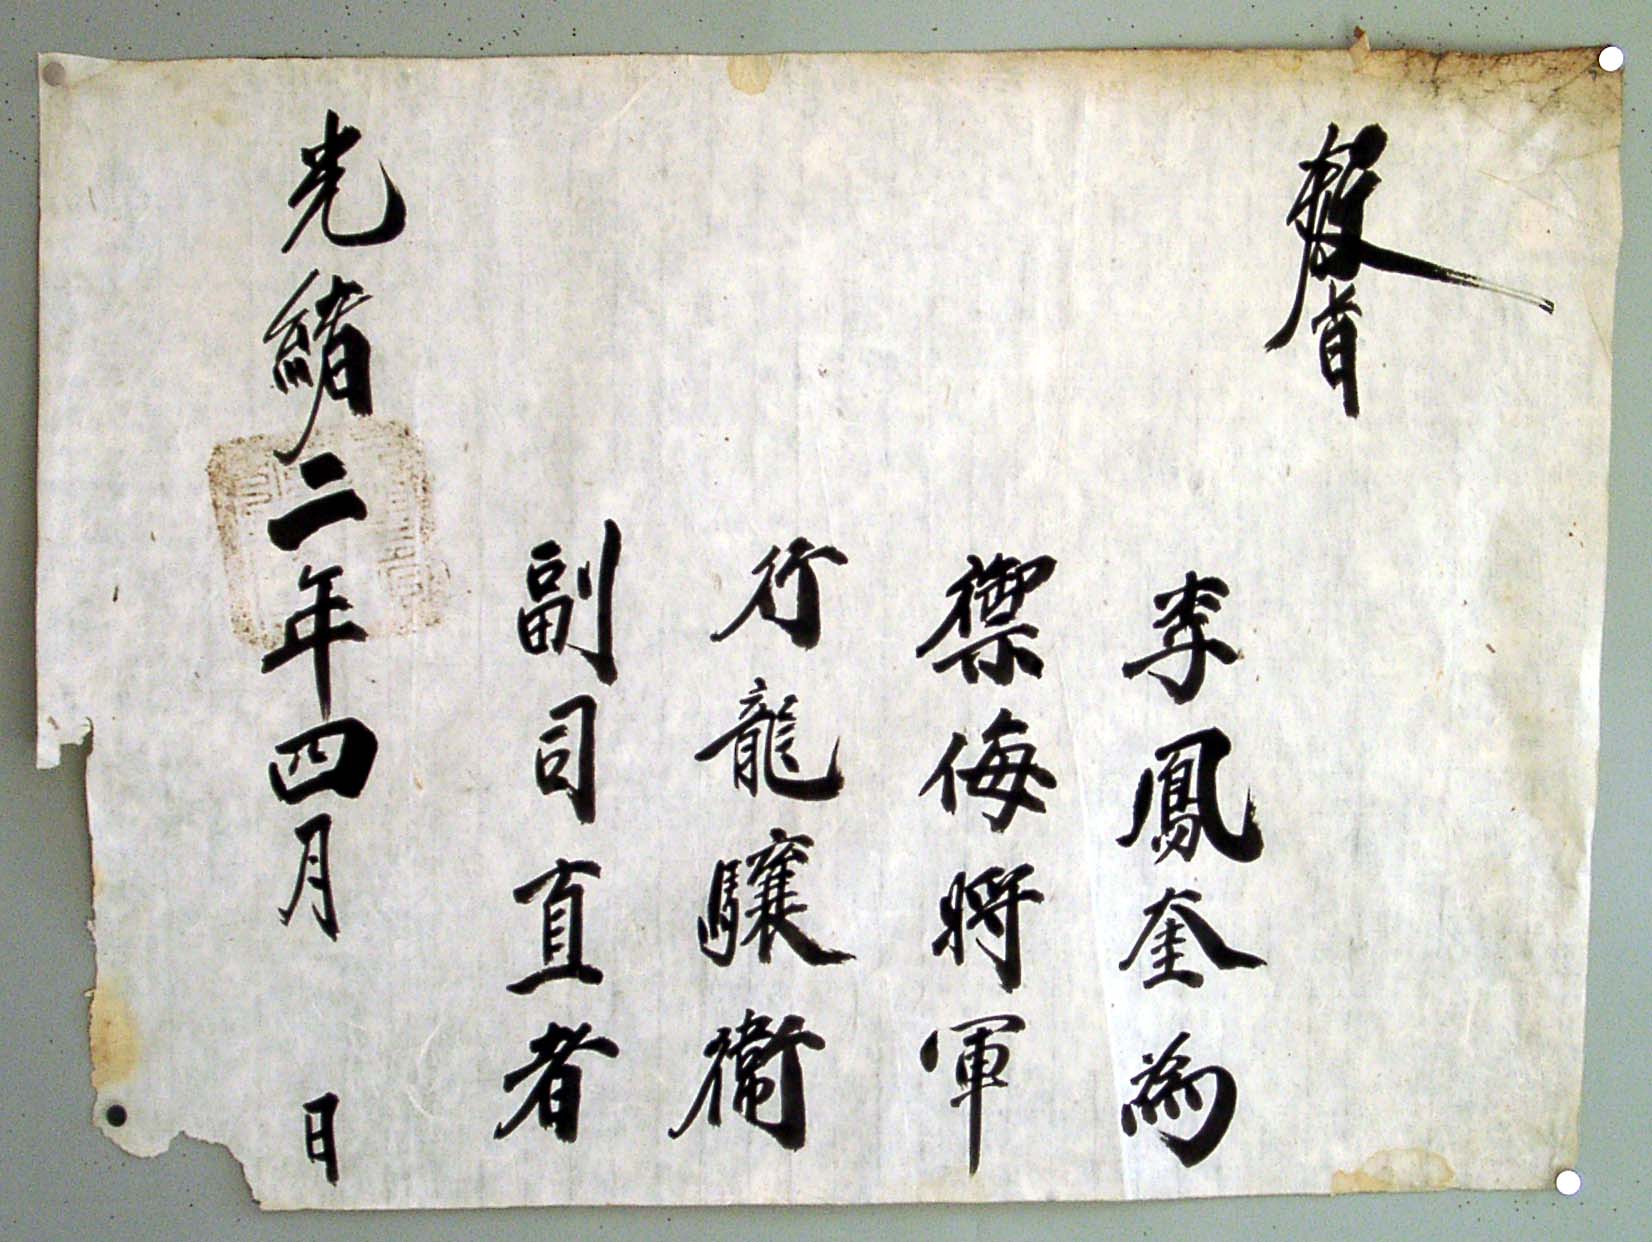 敎旨
李鳳奎為
禦侮將軍
行龍驤衛
副司直者
光緖二年四月 日